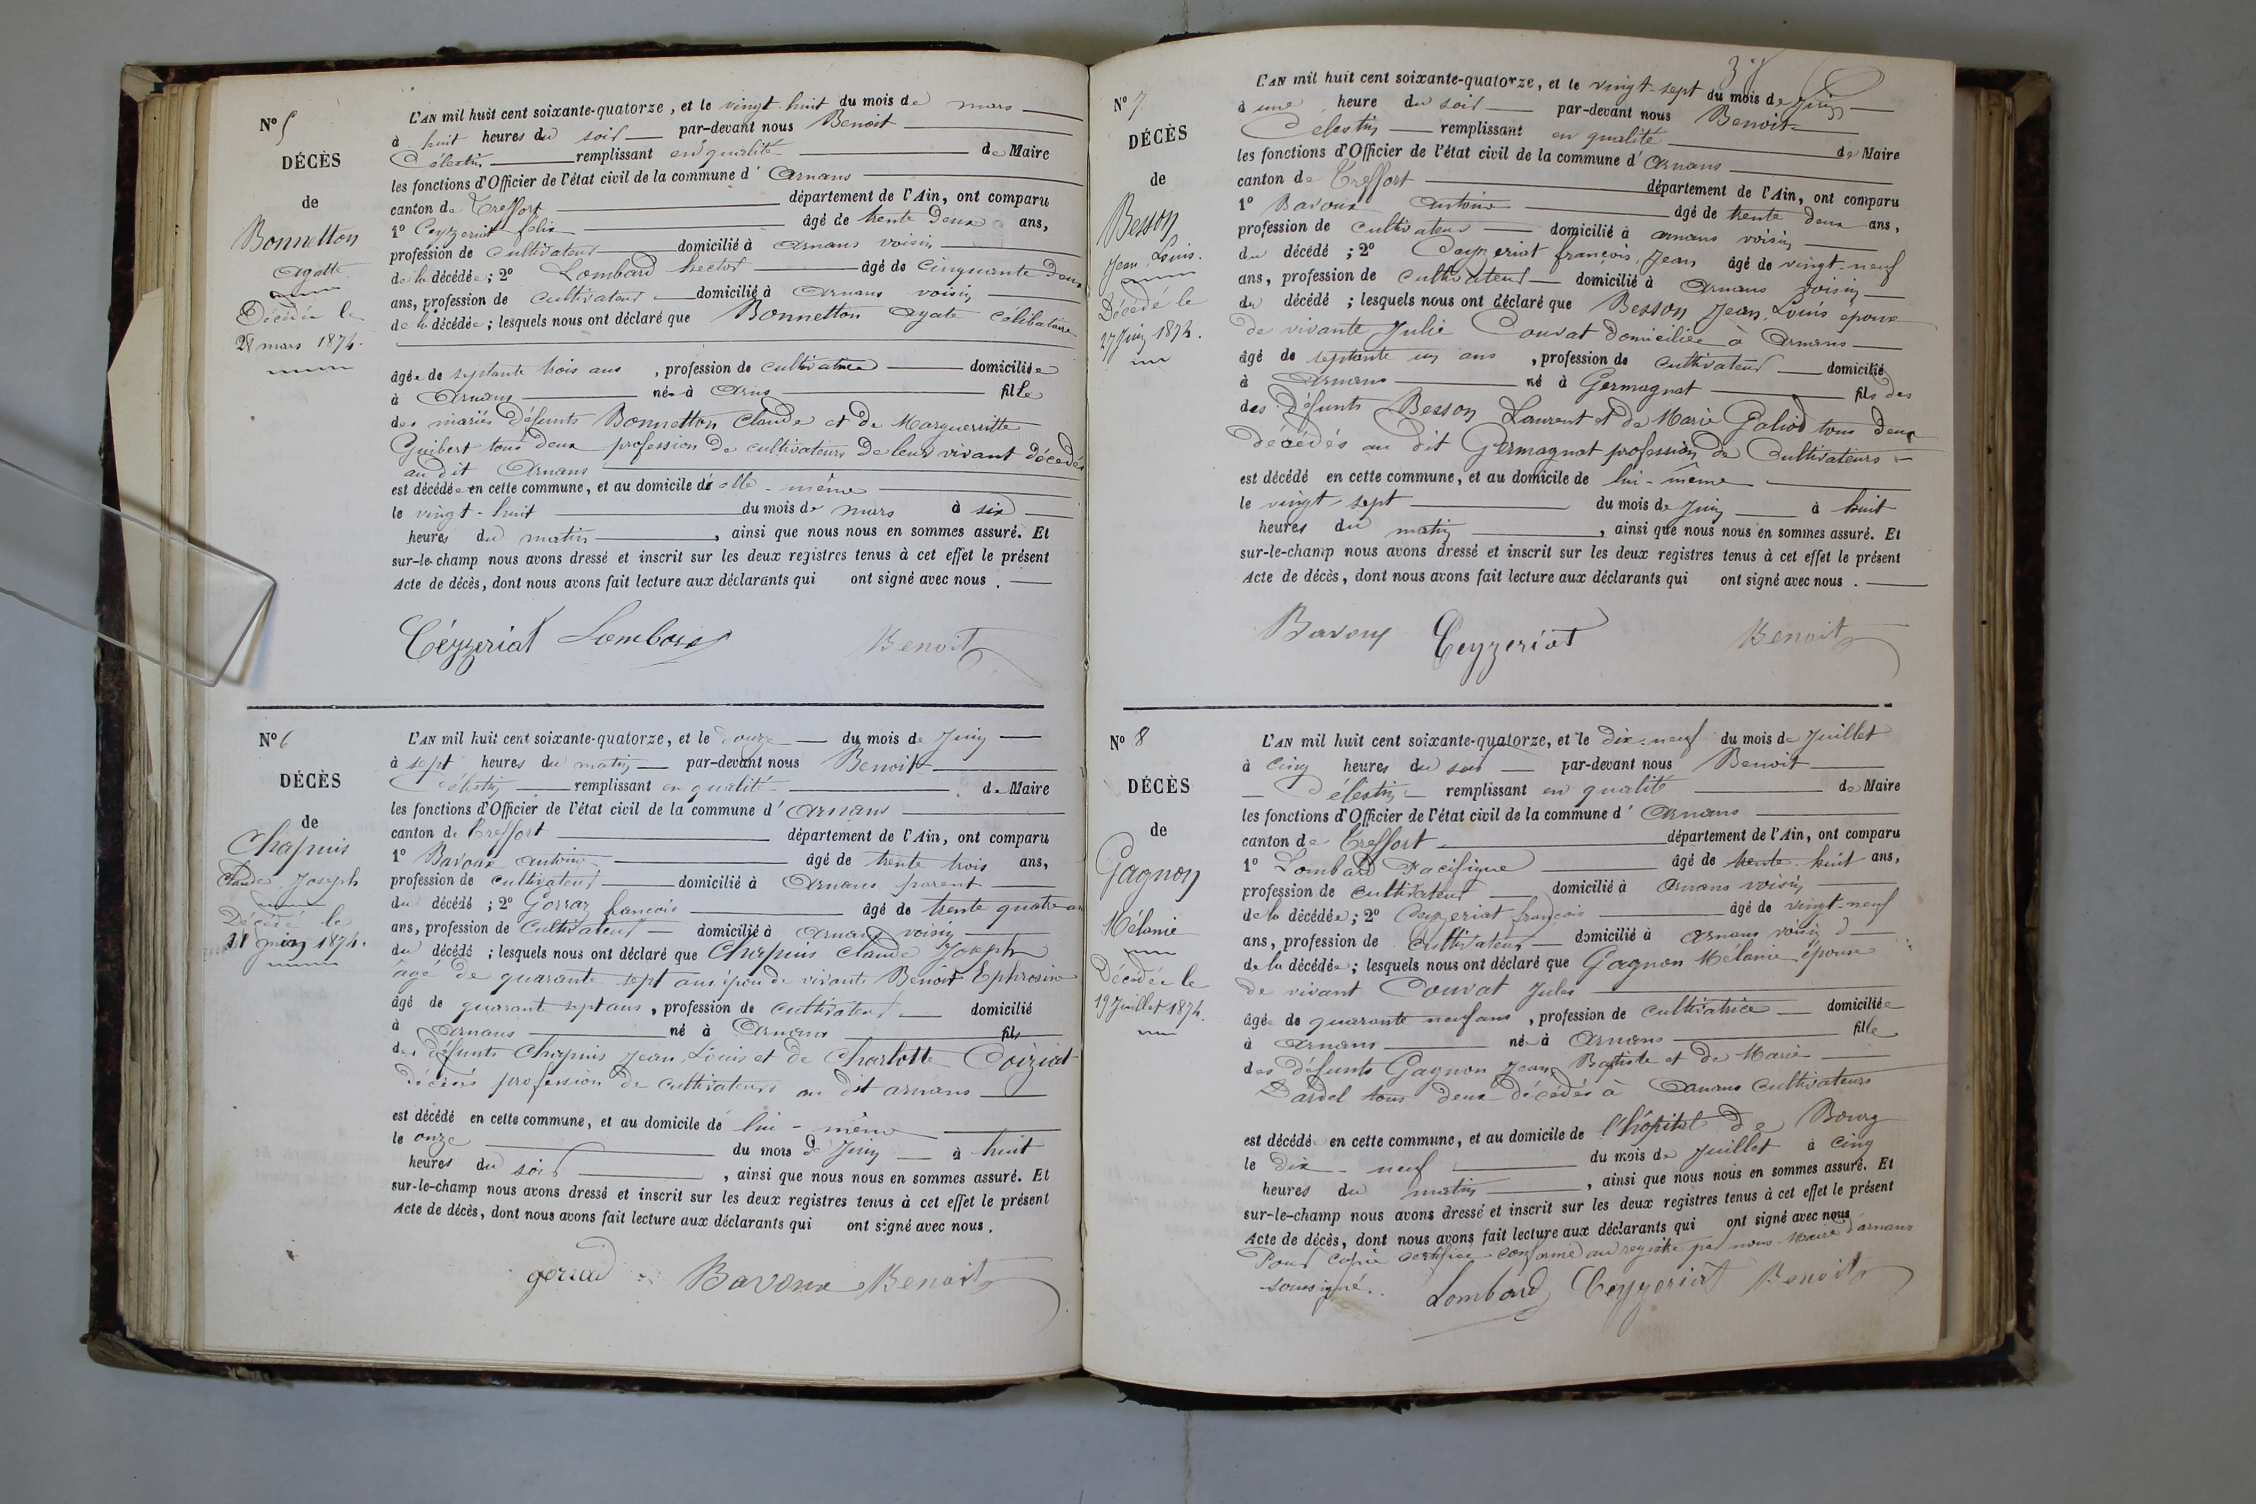 N° 5
DÉCÈS
de
Bonnetton
Agatte
Décédée le
28 mars 1874.
L'AN mil huit cent soixante-quatorze, et le vingt-huit du mois de mars
à huit heures du soir par-devant nous Benoit
Célestin remplissant en qualité de Maire
les fonctions d'Officier de l'état civil de la commune d'Arnans
canton de Treffort département de l'Ain, ont comparu
1° Ceyzeriat felix âgé de trente deux ans,
profession de cultivateur domicilié à Arnans voisin
de la décédée ; 2° Lombard hector âgé de cinquante deux
ans, profession de cultivateur domicilié à Arnans voisin
de la décédée ; lesquels nous ont déclaré que Bonnetton Agate célibataire
âgée de septante trois ans, profession de cultivatrice domiciliée
à Arnans née à Arnans fille
des mariés défunts Bonnetton Claude et de Marguerritte
Guibert tous deux profession de cultivateurs de leur vivant décédés
au dit Arnans
est décédée en cette commune, et au domicile de elle-même
le vingt-huit du mois de mars à six
heures du matin, ainsi que nous nous en sommes assuré. Et
sur-le-champ nous avons dressé et inscrit sur les deux registres tenus à cet effet le présent
Acte de décès, dont nous avons fait lecture aux déclarants qui ont signé avec nous.
Céyzeriat Lombard Benoit
N° 6
DÉCÈS
de
Chapuis
Claude Joseph
Décédé le
11 juin 1874.
L'AN mil huit cent soixante-quatorze, et le douze du mois de Juin
à sept heures du matin par-devant nous Benoit
Célestin remplissant en qualité de Maire
les fonctions d'Officier de l'état civil de la commune d'Arnans
canton de Treffort département de l'Ain, ont comparu
1° Bavoux antoine âgé de trente trois ans,
profession de cultivateur domicilié à Arnans parent
du décédé ; 2° Gorraz francois âgé de trente quatre
ans, profession de Cultivateur domicilié à Arnans voisin
du décédé ; lesquels nous ont déclaré que Chapuis Claude Joseph
âgé de quarante sept ans époux de vivante Benoit Ephrosine
âgé de quarante sept ans, profession de cultivateur domicilié
à Arnans né à Arnans fils
des défunts Chapuis Jean Louis et de Charlotte Coiziat
décédés profession de cultivateurs au dit arnans
est décédé en cette commune, et au domicile de lui-même
le onze du mois de Juin à huit
heures du soir, ainsi que nous nous en sommes assuré. Et
sur-le-champ nous avons dressé et inscrit sur les deux registres tenus à cet effet le présent
Acte de décès, dont nous avons fait lecture aux déclarants qui ont signé avec nous.
gorraz Bavoux Benoit
N° 7
DÉCÈS
de
Besson
Jean Louis.
Décédé le
27 Juin 1874.
L'AN mil huit cent soixante-quatorze, et le vingt-sept du mois de Juin
à une heure du soir par-devant nous Benoit
Célestin remplissant en qualité de Maire
les fonctions d'Officier de l'état civil de la commune d'Arnans
canton de Treffort département de l'Ain, ont comparu
1° Bavoux Antoine âgé de trente deux ans,
profession de cultivateur domicilié à arnans voisin
du décédé ; 2° Ceyzeriat françois Jean âgé de vingt-neuf
ans, profession de cultivateur domicilié à Arnans voisin
du décédé ; lesquels nous ont déclaré que Besson Jean Louis époux
de vivante Julie Couvat domiciliée à Arnans
âgé de septante un ans, profession de cultivateur domicilié
à Arnans né à Germagnat fils des
des défunts Besson Laurent et de Marie Galiod tous deux
décédés au dit Germagnat profession de Cultivateurs
est décédé en cette commune, et au domicile de lui-même
le vingt-sept du mois de Juin à huit
heures du matin, ainsi que nous nous en sommes assuré. Et
sur-le-champ nous avons dressé et inscrit sur les deux registres tenus à cet effet le présent
Acte de décès, dont nous avons fait lecture aux déclarants qui ont signé avec nous.
Bavoux Ceyzeriat Benoit
N° 8
DÉCÈS
de
Gagnon
Mélanie
Décédée le
19 Juillet 1874.
L'AN mil huit cent soixante-quatorze, et le dix-neuf du mois de Juillet
à cinq heures du soir par-devant nous Benoit
Célestin remplissant en qualité de Maire
les fonctions d'Officier de l'état civil de la commune d'Arnans
canton de Treffort département de l'Ain, ont comparu
1° Lombard Pacifique âgé de trente-huit ans,
profession de cultivateur domicilié à Arnans voisin
de la décédée ; 2° Ceyzeriat françois âgé de vingt-neuf
ans, profession de cultivateur domicilié à Arnans voisin
de la décédée ; lesquels nous ont déclaré que Gagnon Mélanie épouse
de vivant Couvat Jules
âgée de quarante neuf ans, profession de cultivatrice domiciliée
à Arnans née à Arnans fille
des défunts Gagnon Jean Baptiste et de Marie
Dardel tous deux décédés à Arnans cultivateurs
est décédé en cette commune, et au domicile de l'hôpital de Bourg
le dix-neuf du mois de Juillet à cinq
heures du matin, ainsi que nous nous en sommes assuré. Et
sur-le-champ nous avons dressé et inscrit sur les deux registres tenus à cet effet le présent
Acte de décès, dont nous avons fait lecture aux déclarants qui ont signé avec nous
Pour copie certifiée conforme au registre par nous Maire d'arnans
soussigné.
Lombard Ceyzeriat Benoit